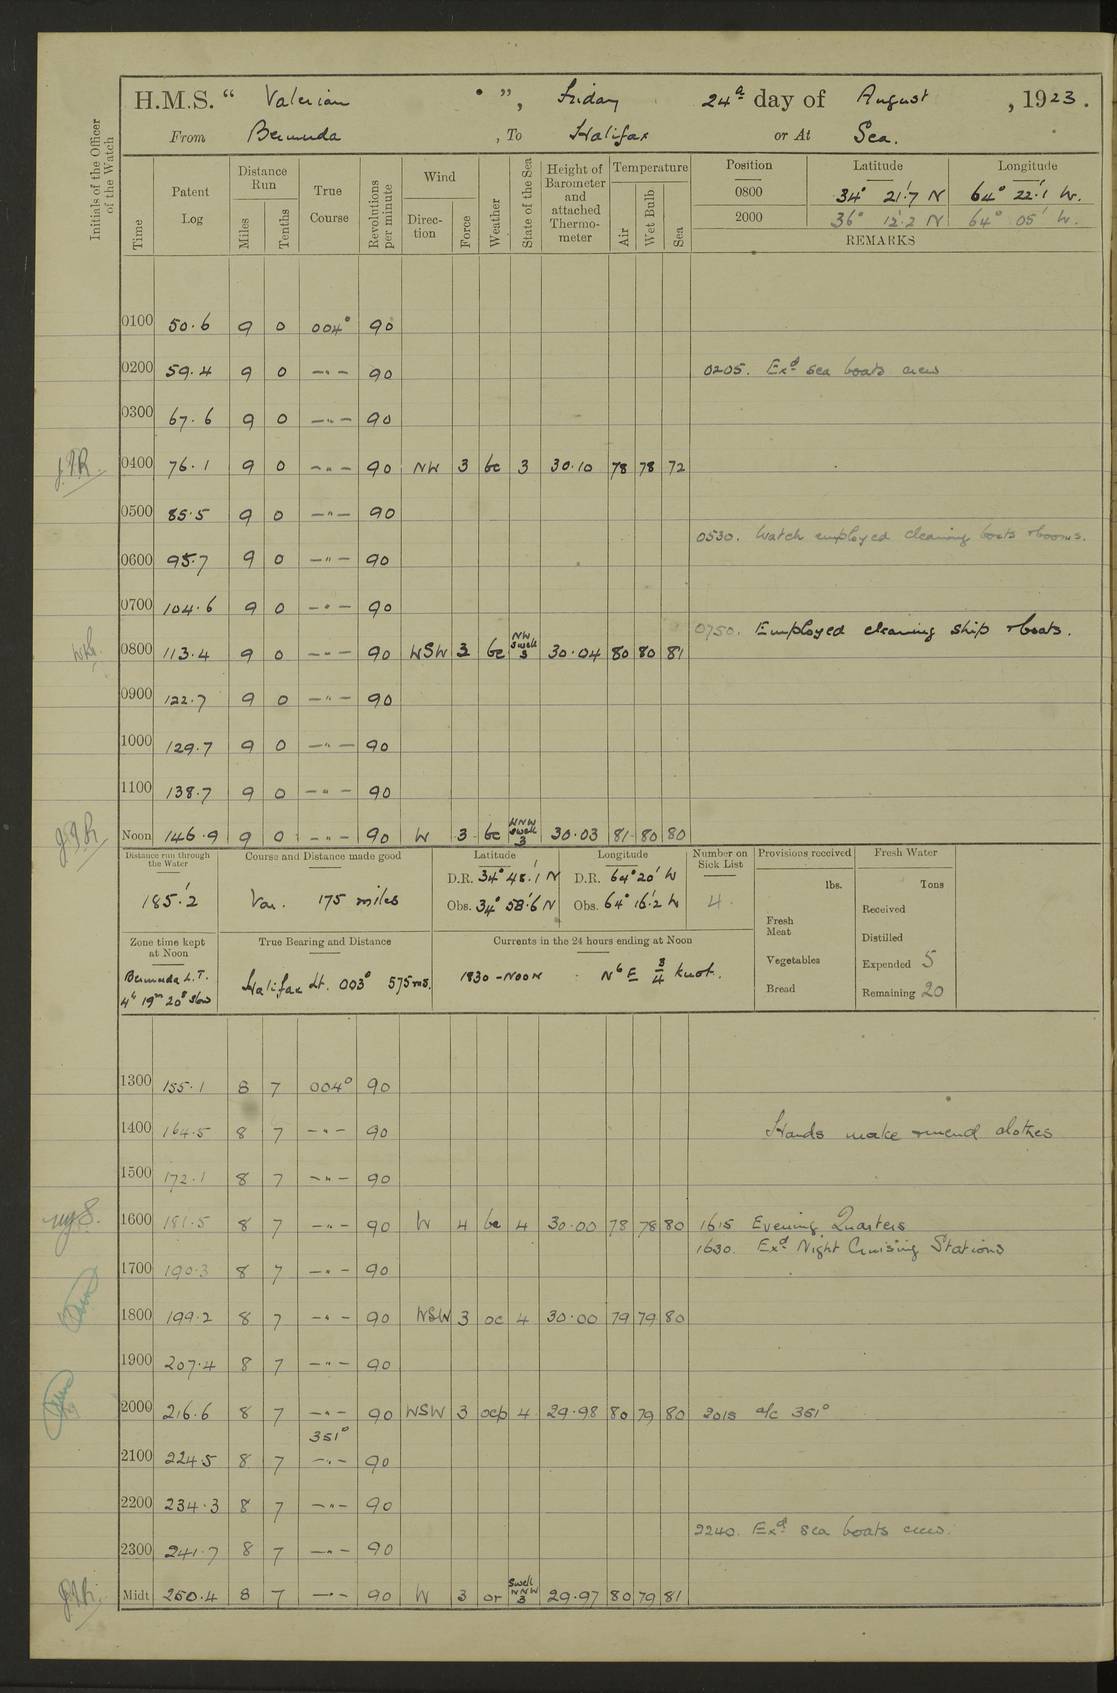 H.M.S. “ Valerian ”, Friday 24th day of August , 1923.
From Bermuda , To Halifax or At Sea.
Initials of the Officer of the Watch
Time Patent Log Distance Run Miles Tenths True Course Revolutions per minute Wind Direction Force Weather State of the Sea Height of Barometer and attached Thermometer Temperature Air Wet Bulb Sea
Position Latitude Longitude
0800 34° 21'.7 N 64° 22'.1 W.
2000 36° 12'.2 N 64° 05' W.
REMARKS
0100 50.6 9 0 004° 90
0200 59.4 9 0 —"— 90 0205. Exd sea boats crew
0300 67.6 9 0 —"— 90
0400 76.1 9 0 —"— 90 NW 3 bc 3 30.10 78 78 72
0500 85.5 9 0 —"— 90
0530. Watch employed cleaning boats & booms.
0600 95.7 9 0 —"— 90
0700 104.6 9 0 —"— 90
0750. Employed cleaning ship & boats.
0800 113.4 9 0 —"— 90 WSW 3 bc NW Swell 3 30.04 80 80 81
0900 122.7 9 0 —"— 90
1000 129.7 9 0 —"— 90
1100 138.7 9 0 —"— 90
Noon 146.9 9 0 —"— 90 W 3 bc WNW Swell 3 30.03 81 80 80
Distance run through the Water Course and Distance made good Latitude Longitude Number on Sick List Provisions received Fresh Water
185'.2 Var. 175 miles
D.R. 34° 48'.1 N D.R. 64° 20' W
Obs. 34° 58'.6 N Obs. 64° 16'.2 W 4.
lbs. Tons
Fresh Meat
Vegetables
Bread
Received
Distilled
Expended 5
Remaining 20
Zone time kept at Noon True Bearing and Distance Currents in the 24 hours ending at Noon
Bermuda L.T. 4h 19m 20s slow
Halifax Lt. 003° 575 ms.
1830 - NOON N 6 E 3/4 knot.
1300 155.1 8 7 004° 90
1400 164.5 8 7 —"— 90 Hands make & mend clothes
1500 172.1 8 7 —"— 90
1600 181.5 8 7 —"— 90 W 4 bc 4 30.00 78 78 80 1615 Evening Quarters
1630. Exd Night Cruising Stations
1700 190.3 8 7 —"— 90
1800 199.2 8 7 —"— 90 WSW 3 oc 4 30.00 79 79 80
1900 207.4 8 7 —"— 90
2000 216.6 8 7 —"— 90 WSW 3 ocp 4 29.98 80 79 80 2015 a/c 351°
351°
2100 224.5 8 7 —"— 90
2200 234.3 8 7 —"— 90
2240. Exd sea boats crew.
2300 241.7 8 7 —"— 90
Midt 250.4 8 7 —"— 90 W 3 or Swell NNW 3 29.97 80 79 81